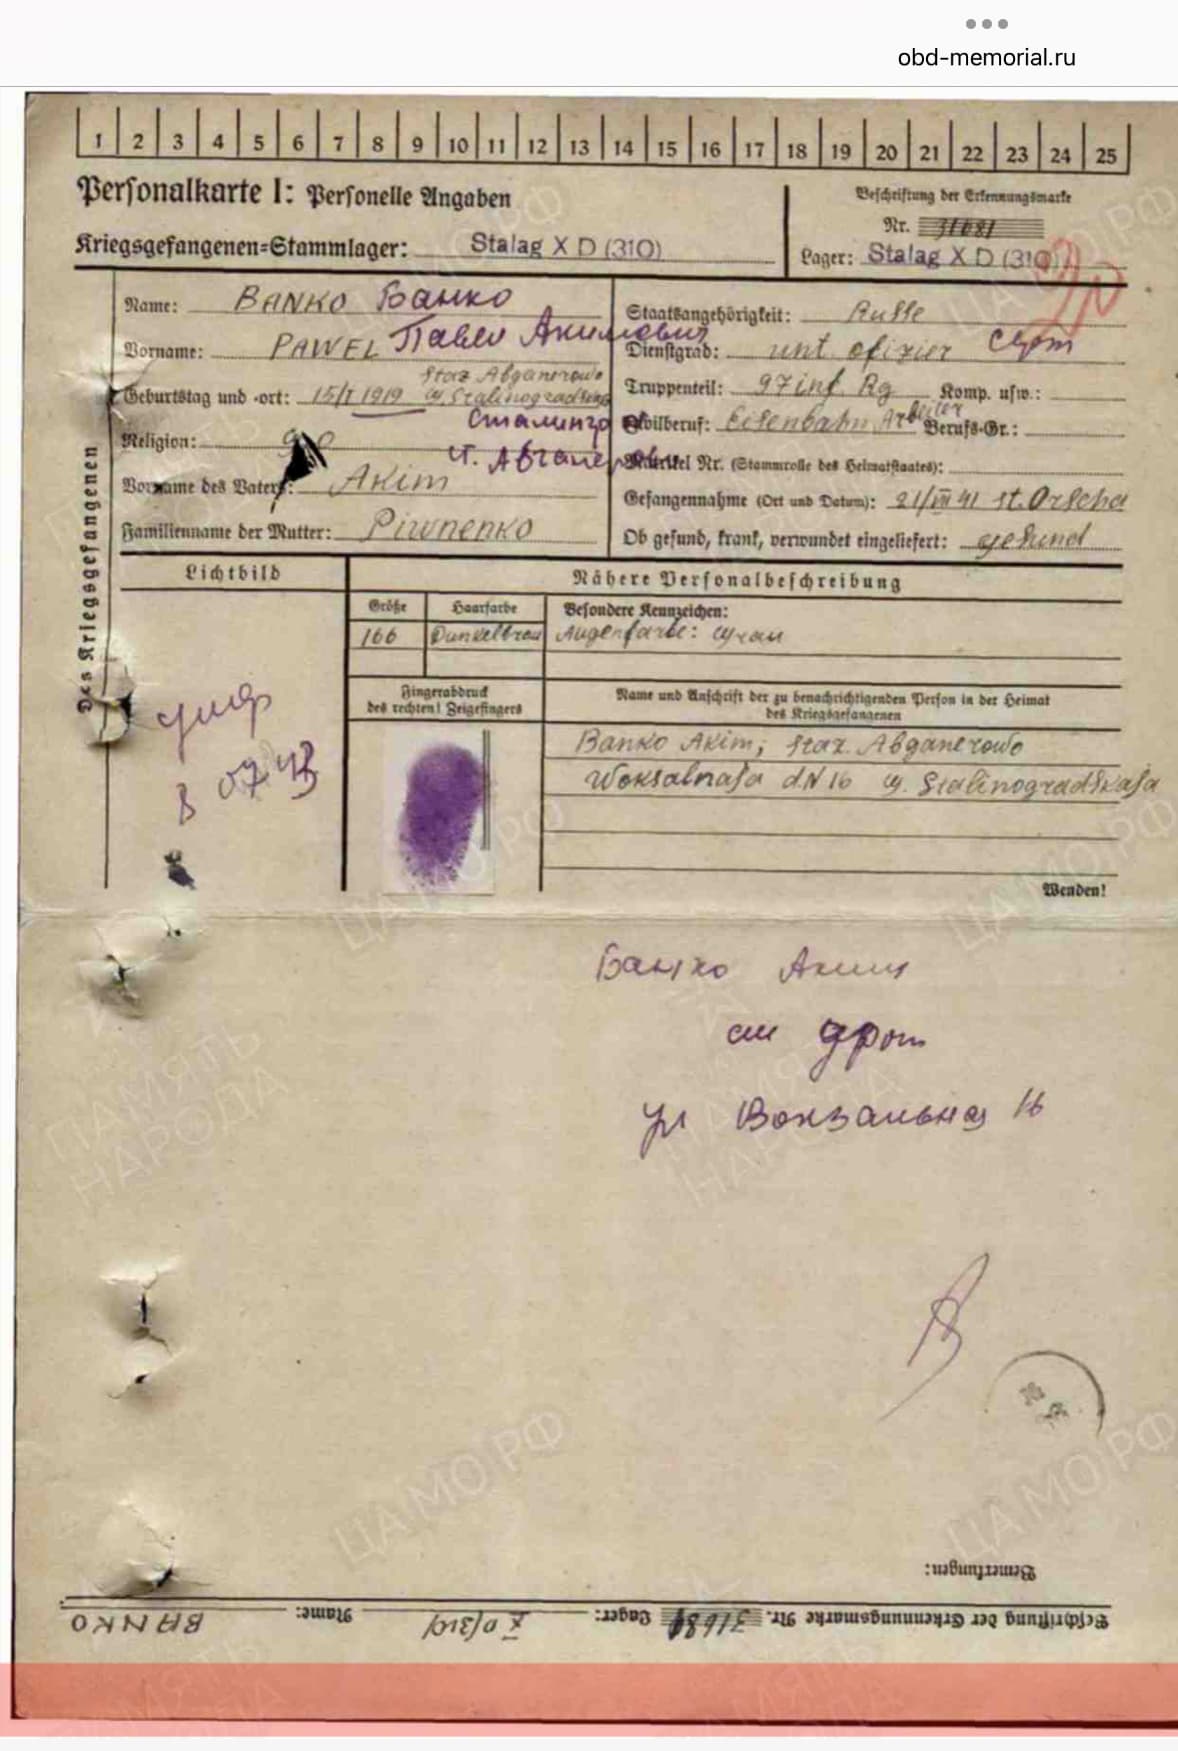 obd-memorial.ru
1 2 3 4 5 6 7 8 9 10 11 12 13 14 15 16 17 18 19 20 21 22 23 24 25
Personalkarte I: Personelle Angaben
Beschriftung der Erkennungsmarke
Nr. 31681
Kriegsgefangenen=Stammlager: Stalag X D (310)
Lager: Stalag X D (310)
Des Kriegsgefangenen
Name: BANKO Банко
Vorname: PAWEL Павел Акимович
Staz Abganerowo
Geburtstag und -ort: 15/I 1919
Сталингр
Religion:
ст. Абганерово
Vorname des Vaters: Akim
Familienname der Mutter: Piwnenko
Staatsangehörigkeit: Russe
Dienstgrad: unt. ofizier
Truppenteil: 97 inf. Rg Komp. usw.:
Zivilberuf: Eisenbahn Arbeiter Berufs-Gr.:
Matrikel Nr. (Stammrolle des Heimatstaates):
Gefangennahme (Ort und Datum): 21/VII 41 st. Orscha
Ob gesund, krank, verwundet eingeliefert: gesund
Lichtbild
Nähere Personalbeschreibung
Größe Haarfarbe Besondere Kennzeichen:
166 Dunkelbrau Augenfarbe:
Fingerabdruck
des rechten! Zeigefingers
Name und Anschrift der zu benachrichtigenden Person in der Heimat
des Kriegsgefangenen
Banko Akim; Staz. Abganerowo
Woksalnaja d. N 16 Stalinogradskaja
умер
в 07.43
Wenden!
Банко Аким
ул Вокзальная 16
Bemerkungen:
Beschriftung der Erkennungsmarke Nr. 31681 Lager: X D/310/ Name: BANKO
ЦАМО РФ
ПАМЯТЬ
НАРОДА